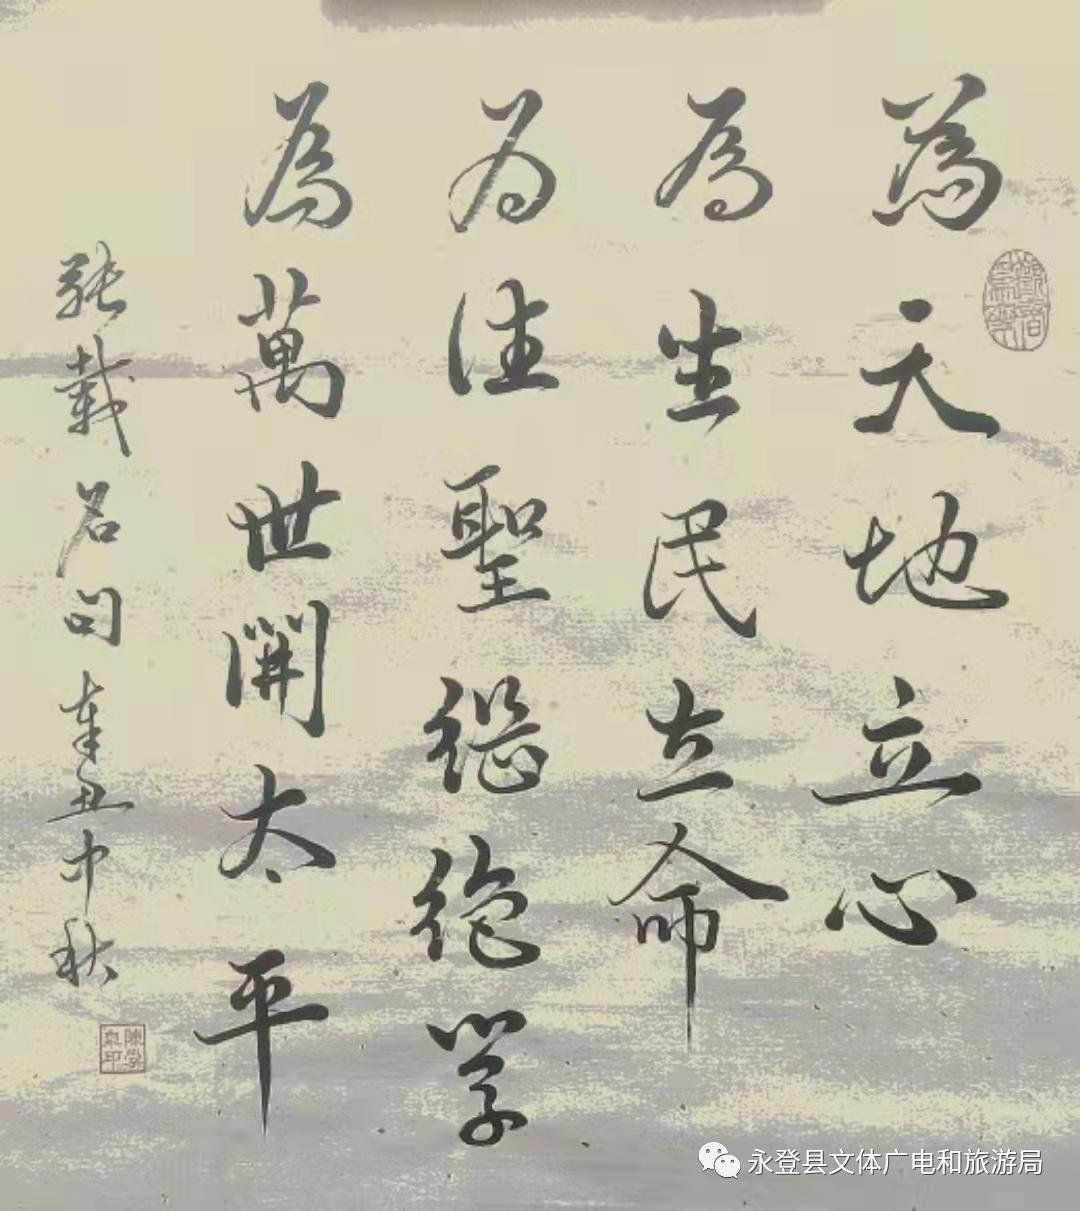 為天地立心
為生民立命
为往聖继绝学
為萬世開太平
張載名句辛丑中秋
永登县文体广电和旅游局